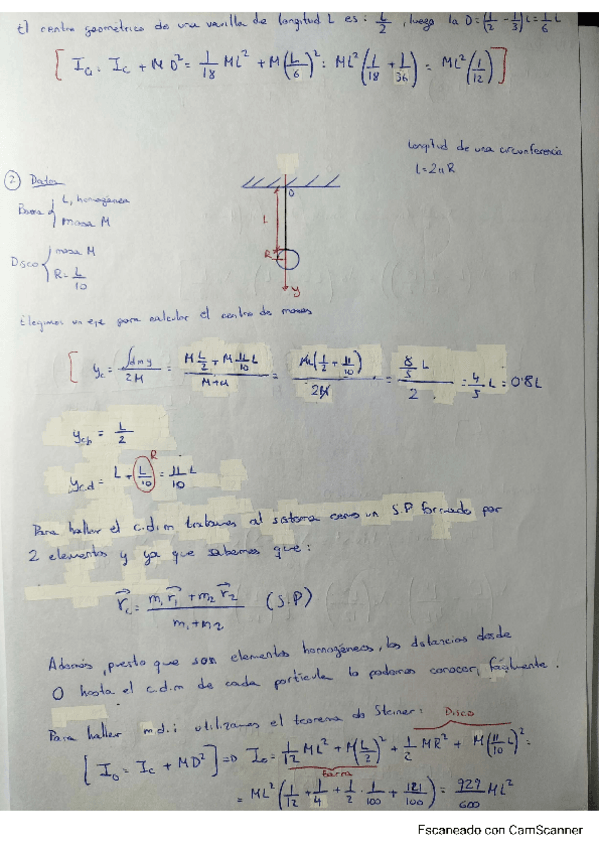 El centro geométrico de una varilla de longitud L es: L/2, luego la D = (1/2 - 1/3)L = 1/6 L
[ I_G = I_C + MD² = 1/18 ML² + M(L/6)² = ML²(1/18 + 1/36) = ML²(1/12) ]
Longitud de una circunferencia
L = 2πR
② Datos
Barra { L, homogénea
masa M
Disco { masa M
R = L/10
O
L
R
y
Elegimos un eje para calcular el centro de masas
[ y_c = ∫dm y / 2M = (M L/2 + M 11/10 L) / (M+M) = M(1/2 + 11/10) / 2M = (8/5 L) / 2 = 4/5 L = 0'8L
y_cb = L/2
R
y_cd = L + L/10 = 11/10 L
Para hallar el c.d.m tratamos al sistema como un S.P formado por
2 elementos y ya que sabemos que:
r_c = (m₁r₁ + m₂r₂) / (m₁+m₂) (S.P)
Además, puesto que son elementos homogéneos, las distancias desde
O hasta el c.d.m de cada partícula la podemos conocer, fácilmente.
Para hallar m.d.i utilizamos el teorema de Steiner:
Disco
[ I_O = I_C + MD² ] => I_O = 1/12 ML² + M(L/2)² + 1/2 MR² + M(11/10 L)² =
Barra
= ML²(1/12 + 1/4 + 1/2 · 1/100 + 121/100) = 929/600 ML²
Escaneado con CamScanner